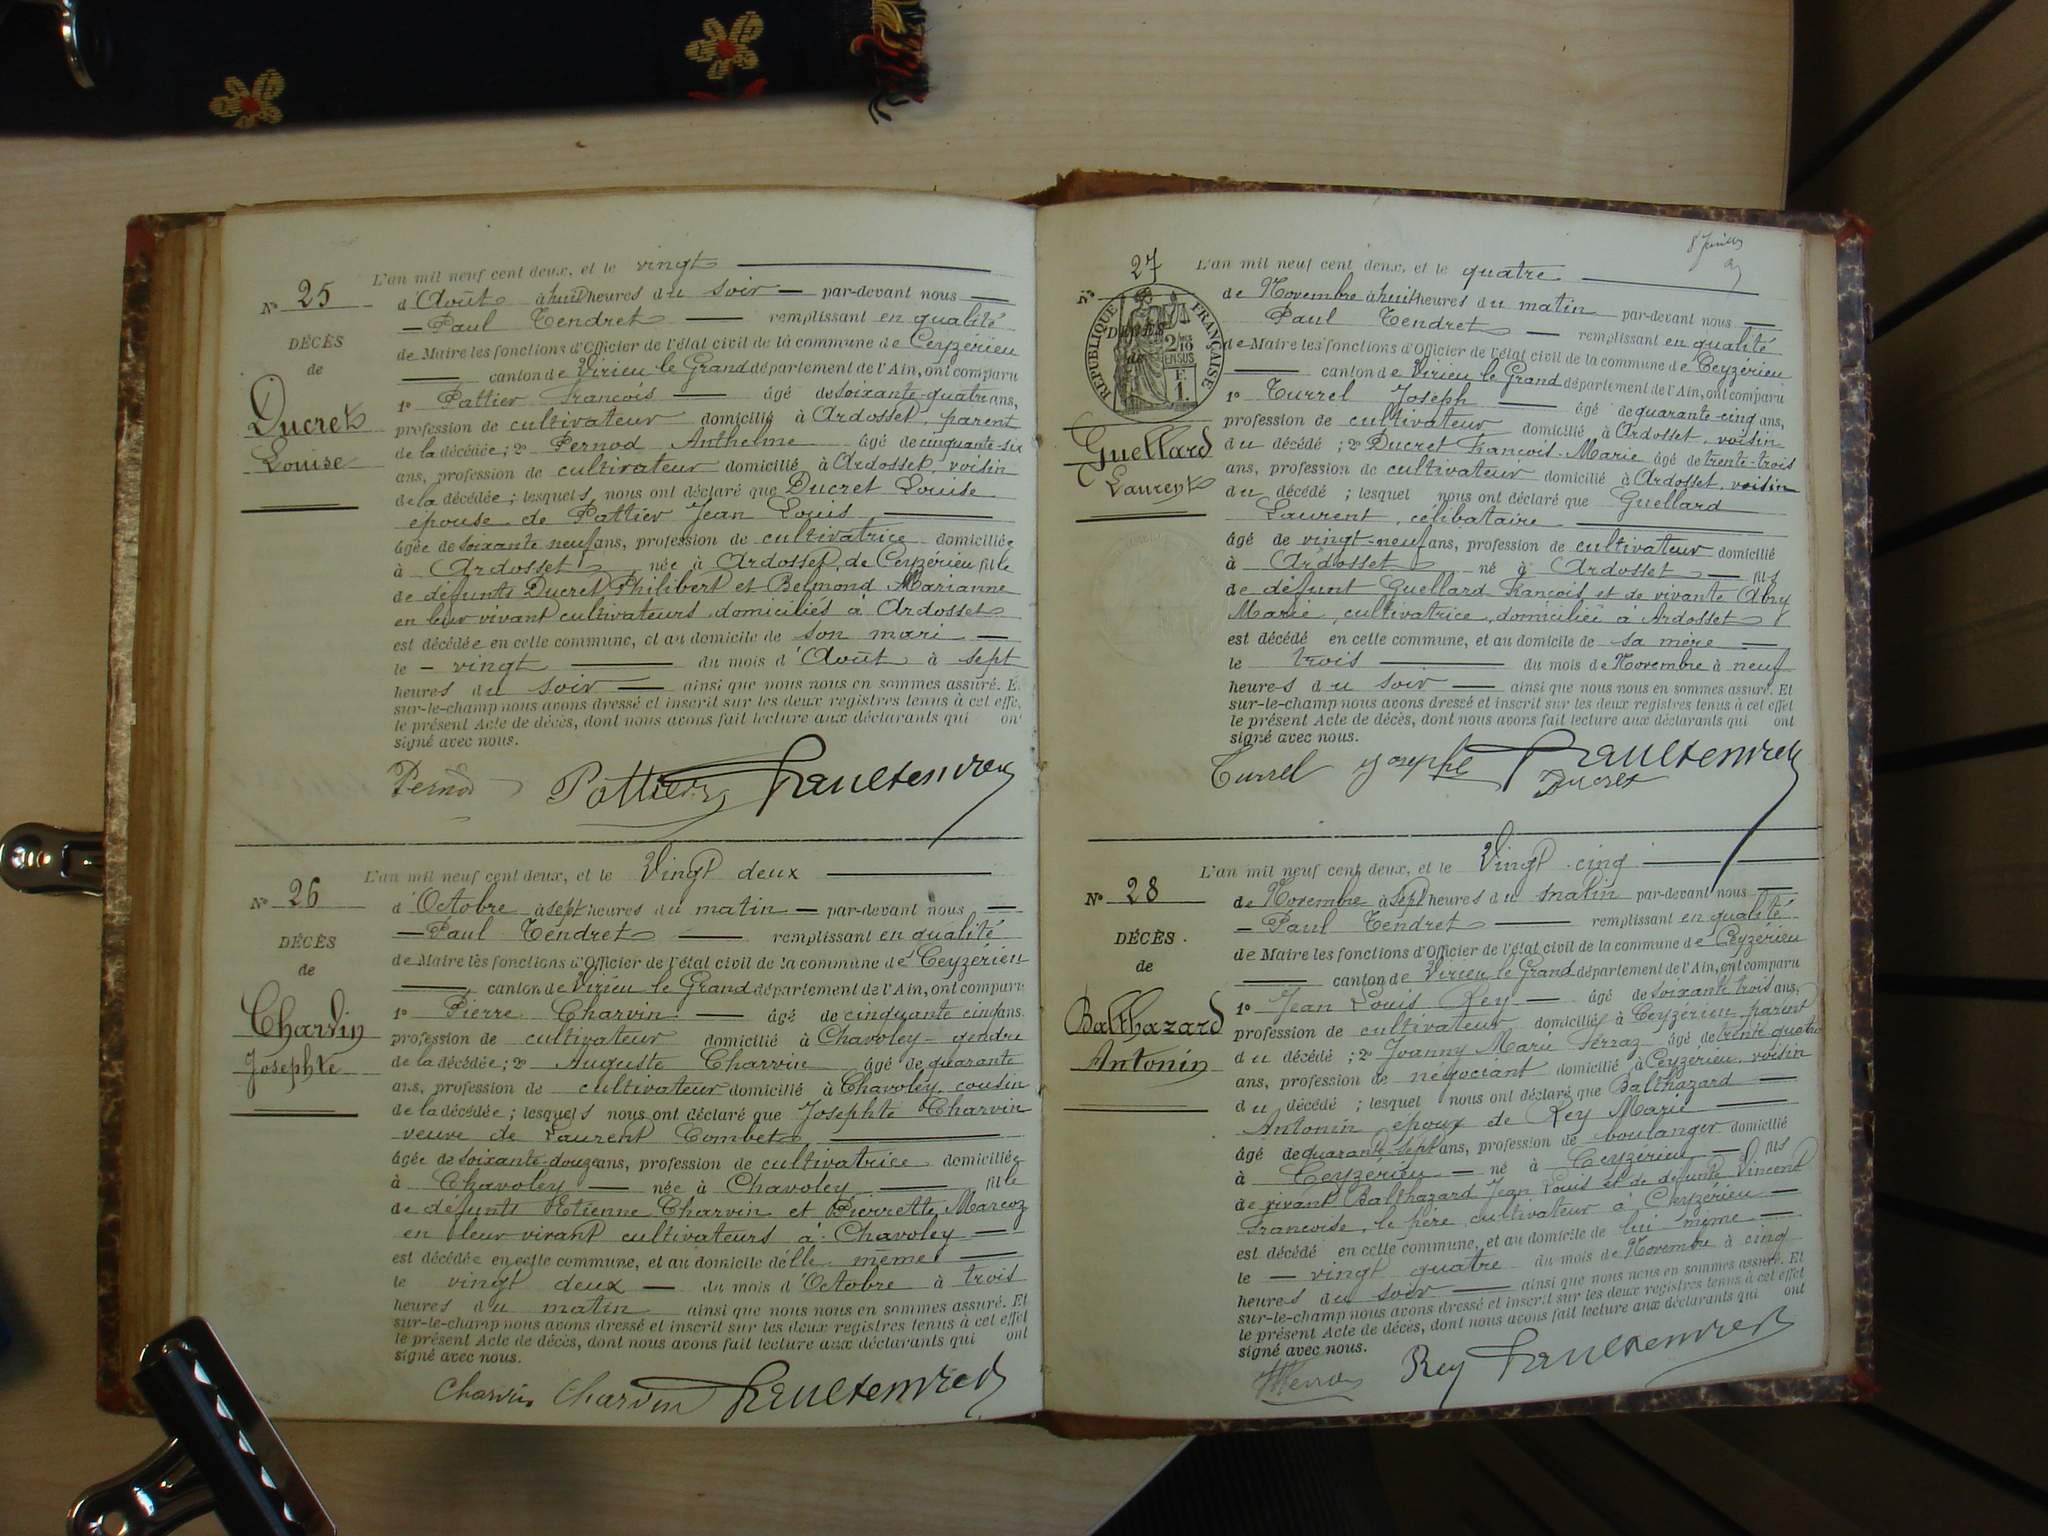 L'an mil neuf cent deux, et le vingt
N° 25
d'Août à huit heures du soir par-devant nous
Paul Tendret remplissant en qualité
DÉCÈS
de Maire les fonctions d'Officier de l'état civil de la commune de Ceyzérieu
de
canton de Virieu le Grand département de l'Ain, ont comparu
1° Pattier François âgé de soixante-quatre ans,
Ducret
profession de cultivateur domicilié à Ardosset, parent
de la décédée; 2° Pernod Anthelme âgé de cinquante-six
Louise
ans, profession de cultivateur domicilié à Ardosset, voisin
de la décédée; lesquels nous ont déclaré que Ducret Louise
épouse de Pattier Jean Louis
âgée de soixante neuf ans, profession de cultivatrice domiciliée
à Ardosset née à Ardosset, de Ceyzérieu fille
de défunts Ducret Philibert et Belmond Marianne
en leur vivant cultivateurs domiciliés à Ardosset
est décédée en cette commune, et au domicile de son mari
le vingt du mois d'Août à sept
heures du soir ainsi que nous nous en sommes assuré. Et
sur-le-champ nous avons dressé et inscrit sur les deux registres tenus à cet effet
le présent Acte de décès, dont nous avons fait lecture aux déclarants qui ont
signé avec nous.
Pernod Pattier Paul Tendret
L'an mil neuf cent deux, et le Vingt deux
N° 26
d'Octobre à sept heures du matin par-devant nous
Paul Tendret remplissant en qualité
DÉCÈS
de Maire les fonctions d'Officier de l'état civil de la commune de Ceyzérieu
de
canton de Virieu le Grand département de l'Ain, ont comparu
Charvin
1° Pierre Charvin âgé de cinquante cinq ans.
profession de cultivateur domicilié à Chavoley gendre
Josephte
de la décédée; 2° Auguste Charvin âgé de quarante
ans, profession de cultivateur domicilié à Chavoley cousin
de la décédée; lesquels nous ont déclaré que Josephte Charvin
veuve de Laurent Combet
âgée de soixante-douze ans, profession de cultivatrice domiciliée
à Chavoley née à Chavoley fille
de défunts Etienne Charvin et Pierrette Marcoz
en leur vivant cultivateurs à Chavoley
est décédée en cette commune, et au domicile d'elle même
le vingt deux du mois d'Octobre à trois
heures du matin ainsi que nous nous en sommes assuré. Et
sur-le-champ nous avons dressé et inscrit sur les deux registres tenus à cet effet
le présent Acte de décès, dont nous avons fait lecture aux déclarants qui ont
signé avec nous.
Charvin Charvin Paul Tendret
27
L'an mil neuf cent deux, et le quatre
N°
de Novembre à huit heures du matin par-devant nous
RÉPUBLIQUE FRANÇAISE
DÉCÈS
de
2/10 EN SUS
F 1.
Paul Tendret remplissant en qualité
de Maire les fonctions d'Officier de l'état civil de la commune de Ceyzérieu
canton de Virieu le Grand département de l'Ain, ont comparu
1° Turrel Joseph âgé de quarante-cinq ans,
profession de cultivateur domicilié à Ardosset, voisin
Guellard
du décédé; 2° Ducret François-Marie âgé de trente-trois
ans, profession de cultivateur domicilié à Ardosset, voisin
Laurent
du décédé; lesquel nous ont déclaré que Guellard
Laurent, célibataire
âgé de vingt-neuf ans, profession de cultivateur domicilié
à Ardosset né à Ardosset fils
de défunt Guellard François et de vivante Abry
Marie, cultivatrice, domiciliée à Ardosset
est décédé en cette commune, et au domicile de sa mère
le trois du mois de Novembre à neuf
heures du soir ainsi que nous nous en sommes assuré. Et
sur-le-champ nous avons dressé et inscrit sur les deux registres tenus à cet effet
le présent Acte de décès, dont nous avons fait lecture aux déclarants qui ont
signé avec nous.
Turrel Josephe Paul Tendret
Ducret
L'an mil neuf cent deux, et le Vingt cinq
N° 28
de Novembre à sept heures du matin par-devant nous
Paul Tendret remplissant en qualité
DÉCÈS
de Maire les fonctions d'Officier de l'état civil de la commune de Ceyzérieu
de
canton de Virieu le Grand département de l'Ain, ont comparu
1° Jean Louis Rey âgé de soixante trois ans,
Balthazard
profession de cultivateur domicilié à Ceyzérieu parent
du décédé; 2° Joanny Marie Ferraz âgé de trente quatre
Antonin
ans, profession de négociant domicilié à Ceyzérieu, voisin
du décédé; lesquel nous ont déclaré que Balthazard
Antonin époux de Rey Marie
âgé de quarante sept ans, profession de boulanger domicilié
à Ceyzérieu né à Ceyzérieu fils
de vivant Balthazard Jean Louis et de défunte Vincent
Francoise, le père cultivateur à Ceyzérieu
est décédé en cette commune, et au domicile de lui même
le vingt quatre du mois de Novembre à cinq
heures du soir ainsi que nous nous en sommes assuré. Et
sur-le-champ nous avons dressé et inscrit sur les deux registres tenus à cet effet
le présent Acte de décès, dont nous avons fait lecture aux déclarants qui ont
signé avec nous.
Rey Paul Tendret